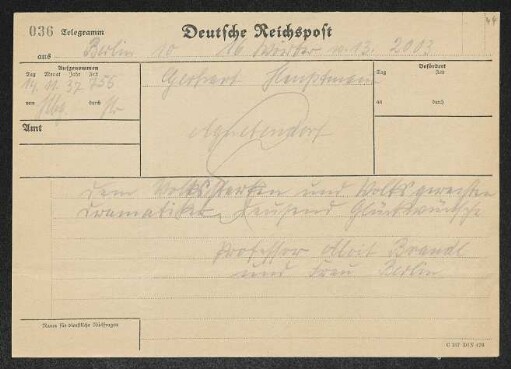 44
036 Telegramm Deutsche Reichspost
aus Berlin 10 16 Wörter 13. 2003
Aufgenommen
Tag Monat Jahr Zeit
14 11. 37 756
von Hbg. durch
Amt
Gerhart Hauptmann
Agnetendorf
Befördert
Tag Zeit
an durch
dem Volksstarken und Volksgerechten
Dramatiker Tausend Glückwünsche
Professor Alois Brandl
und Frau Berlin
Raum für dienstliche Rückfragen
C 187 DIN 476